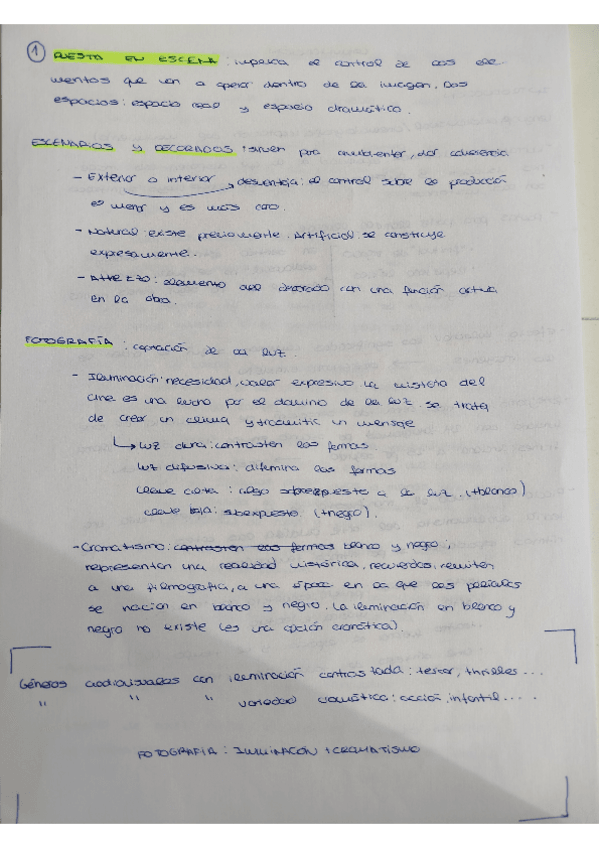 1 PUESTA EN ESCENA : implica el control de los ele
mentos que van a operar dentro de la imagen. Dos
espacios: espacio real y espacio dramático.
ESCENARIOS y DECORADOS : sirven para ambientar, dar coherencia
- Exterior o interior desventaja: el control sobre la producción
es menor y es más caro.
- Natural: existe previamente. Artificial: se construye
expresamente.
- ATREZZO: elemento del decorado con una función activa
en la obra.
FOTOGRAFÍA : captación de la luz.
- Iluminación: necesidad, valor expresivo. La historia del
cine es una lucha por el dominio de la luz. Se trata
de crear un clima y trasmitir un mensaje
luz dura: contrasten las formas
luz difusiva: difumina las formas
clave alta: algo sobrexpuesto a la luz. (+blanco)
clave baja: subexpuesto. (+negro).
- Cromatismo: contrasten las formas blanco y negro:
representan una realidad histórica, recuerdos, remiten
a una filmografía, a una época en la que las películas
se hacían en blanco y negro. La iluminación en blanco y
negro no existe (es una opción cromática)
Géneros audiovisuales con iluminación contrastada: terror, thriller...
" " " variedad cromática: acción, infantil....
FOTOGRAFIA : ILUMINACION + CROMATISMO